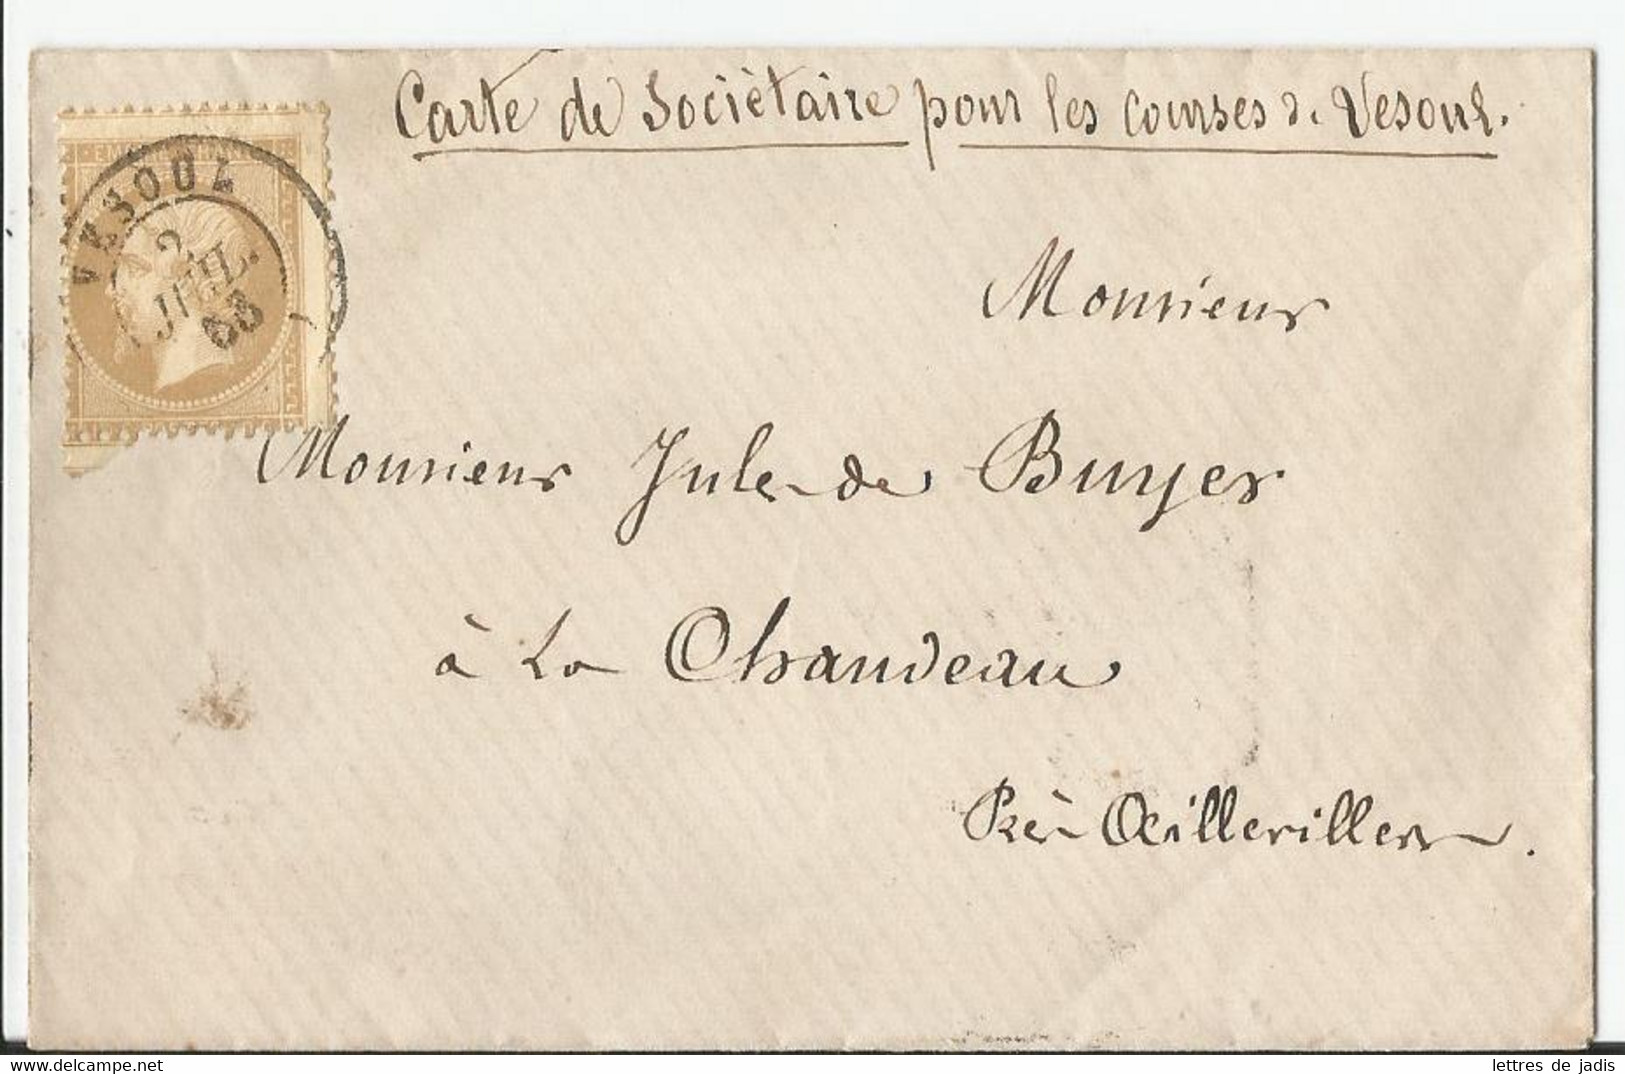 Carte de Sociètaire pour les courses d. Vesoul.
VESOUL
2
JUIL.
63
Monsieur
Monsieur Jules de Buyer
à La Chaudeau
Près Aillevillers.
lettres de jadis